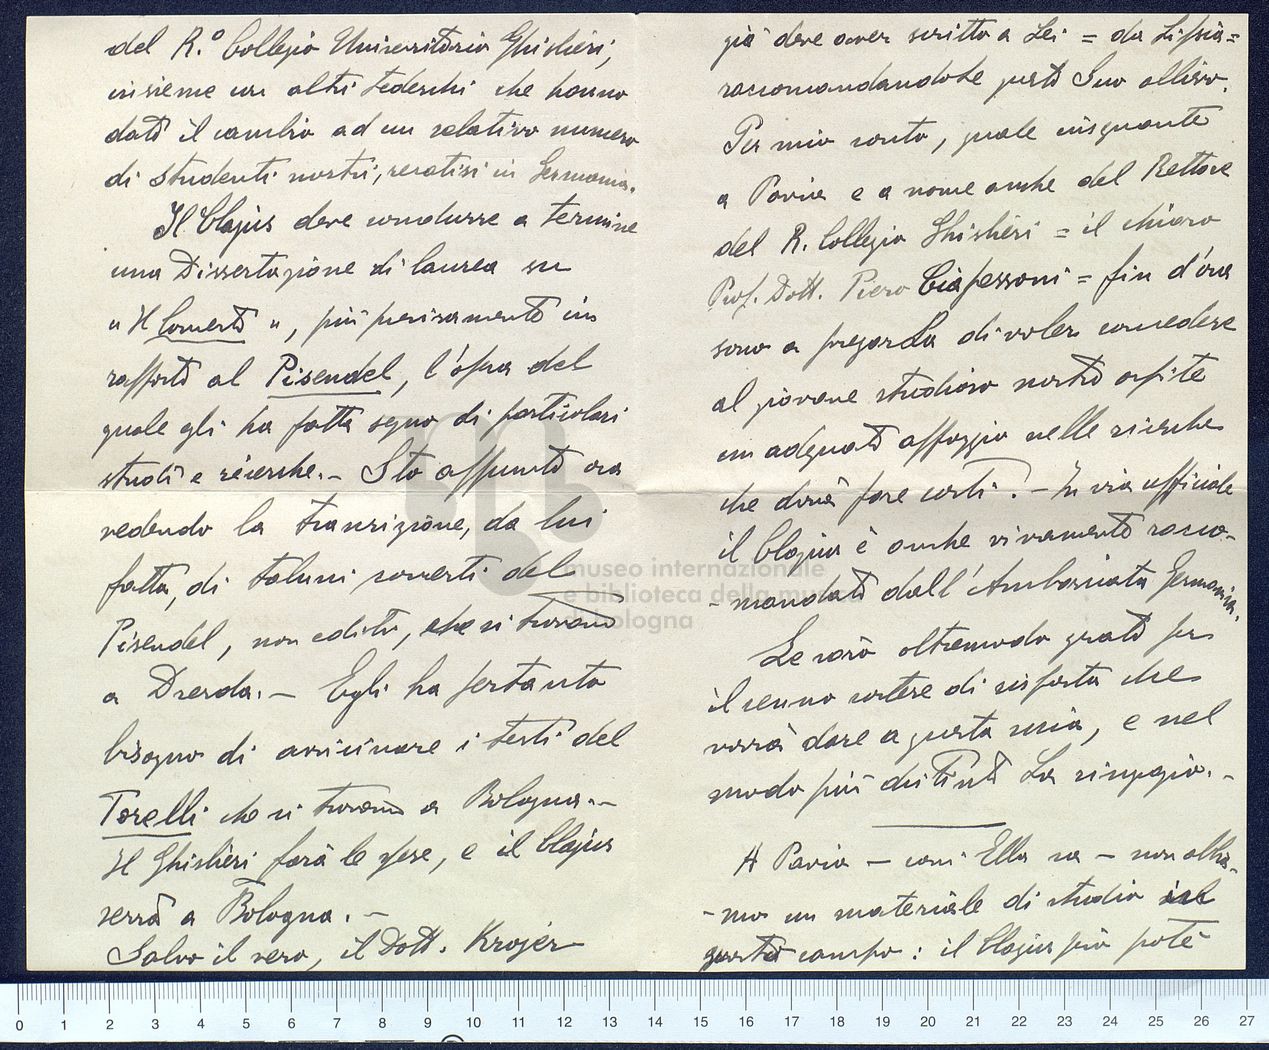 del R.º Collegio Universitario Ghislieri,
insieme con altri tedeschi che hanno
dato il cambio ad un relativo numero
di studenti nostri, recatisi in Germania.
Il Clajus deve condurre a termine
una Dissertazione di laurea su
"Il Concerto", più precisamente in
rapporto al Pisendel, l'opera del
quale gli ha fatta segno di particolari
studî e ricerche. - Sto appunto ora
vedendo la transrizione, da lui
fatta, di taluni concerti del
Pisendel, non editi, che si trovano
a Dresda. - Egli ha pertanto
bisogno di avvicinare i testi del
Torelli che si trovano a Bologna. -
Il Ghislieri farà le spese, e il Clajus
verrà a Bologna. -
Salvo il vero, il Dott. Krojer
già deve aver scritto a Lei = da Lipsia =
raccomandandole questo Suo allievo.
Per mio conto, quale insegnante
a Pavia e a nome anche del Rettore
del R. Collegio Ghislieri = il chiaro
Prof. Dott. Piero Ciapessoni = fin d'ora
sono a pregarLa di voler concedere
al giovane studioso nostro ospite
un adeguato appoggio nelle ricerche
che dovrà fare costì. - In via ufficiale
il Clajus è anche vivamente racco-
- mandato dall'Ambasciata Germanica.
Le sarò oltremodo grato per
il cenno cortese di risposta che
vorrà dare a questa mia, e nel
modo più distinto La ringrazio. -
A Pavia - com' Ella sa - non abbia-
- mo un materiale di studio in
questo campo: il Clajus più potè
museo internazionale
e biblioteca della musica
di bologna
0 1 2 3 4 5 6 7 8 9 10 11 12 13 14 15 16 17 18 19 20 21 22 23 24 25 26 27